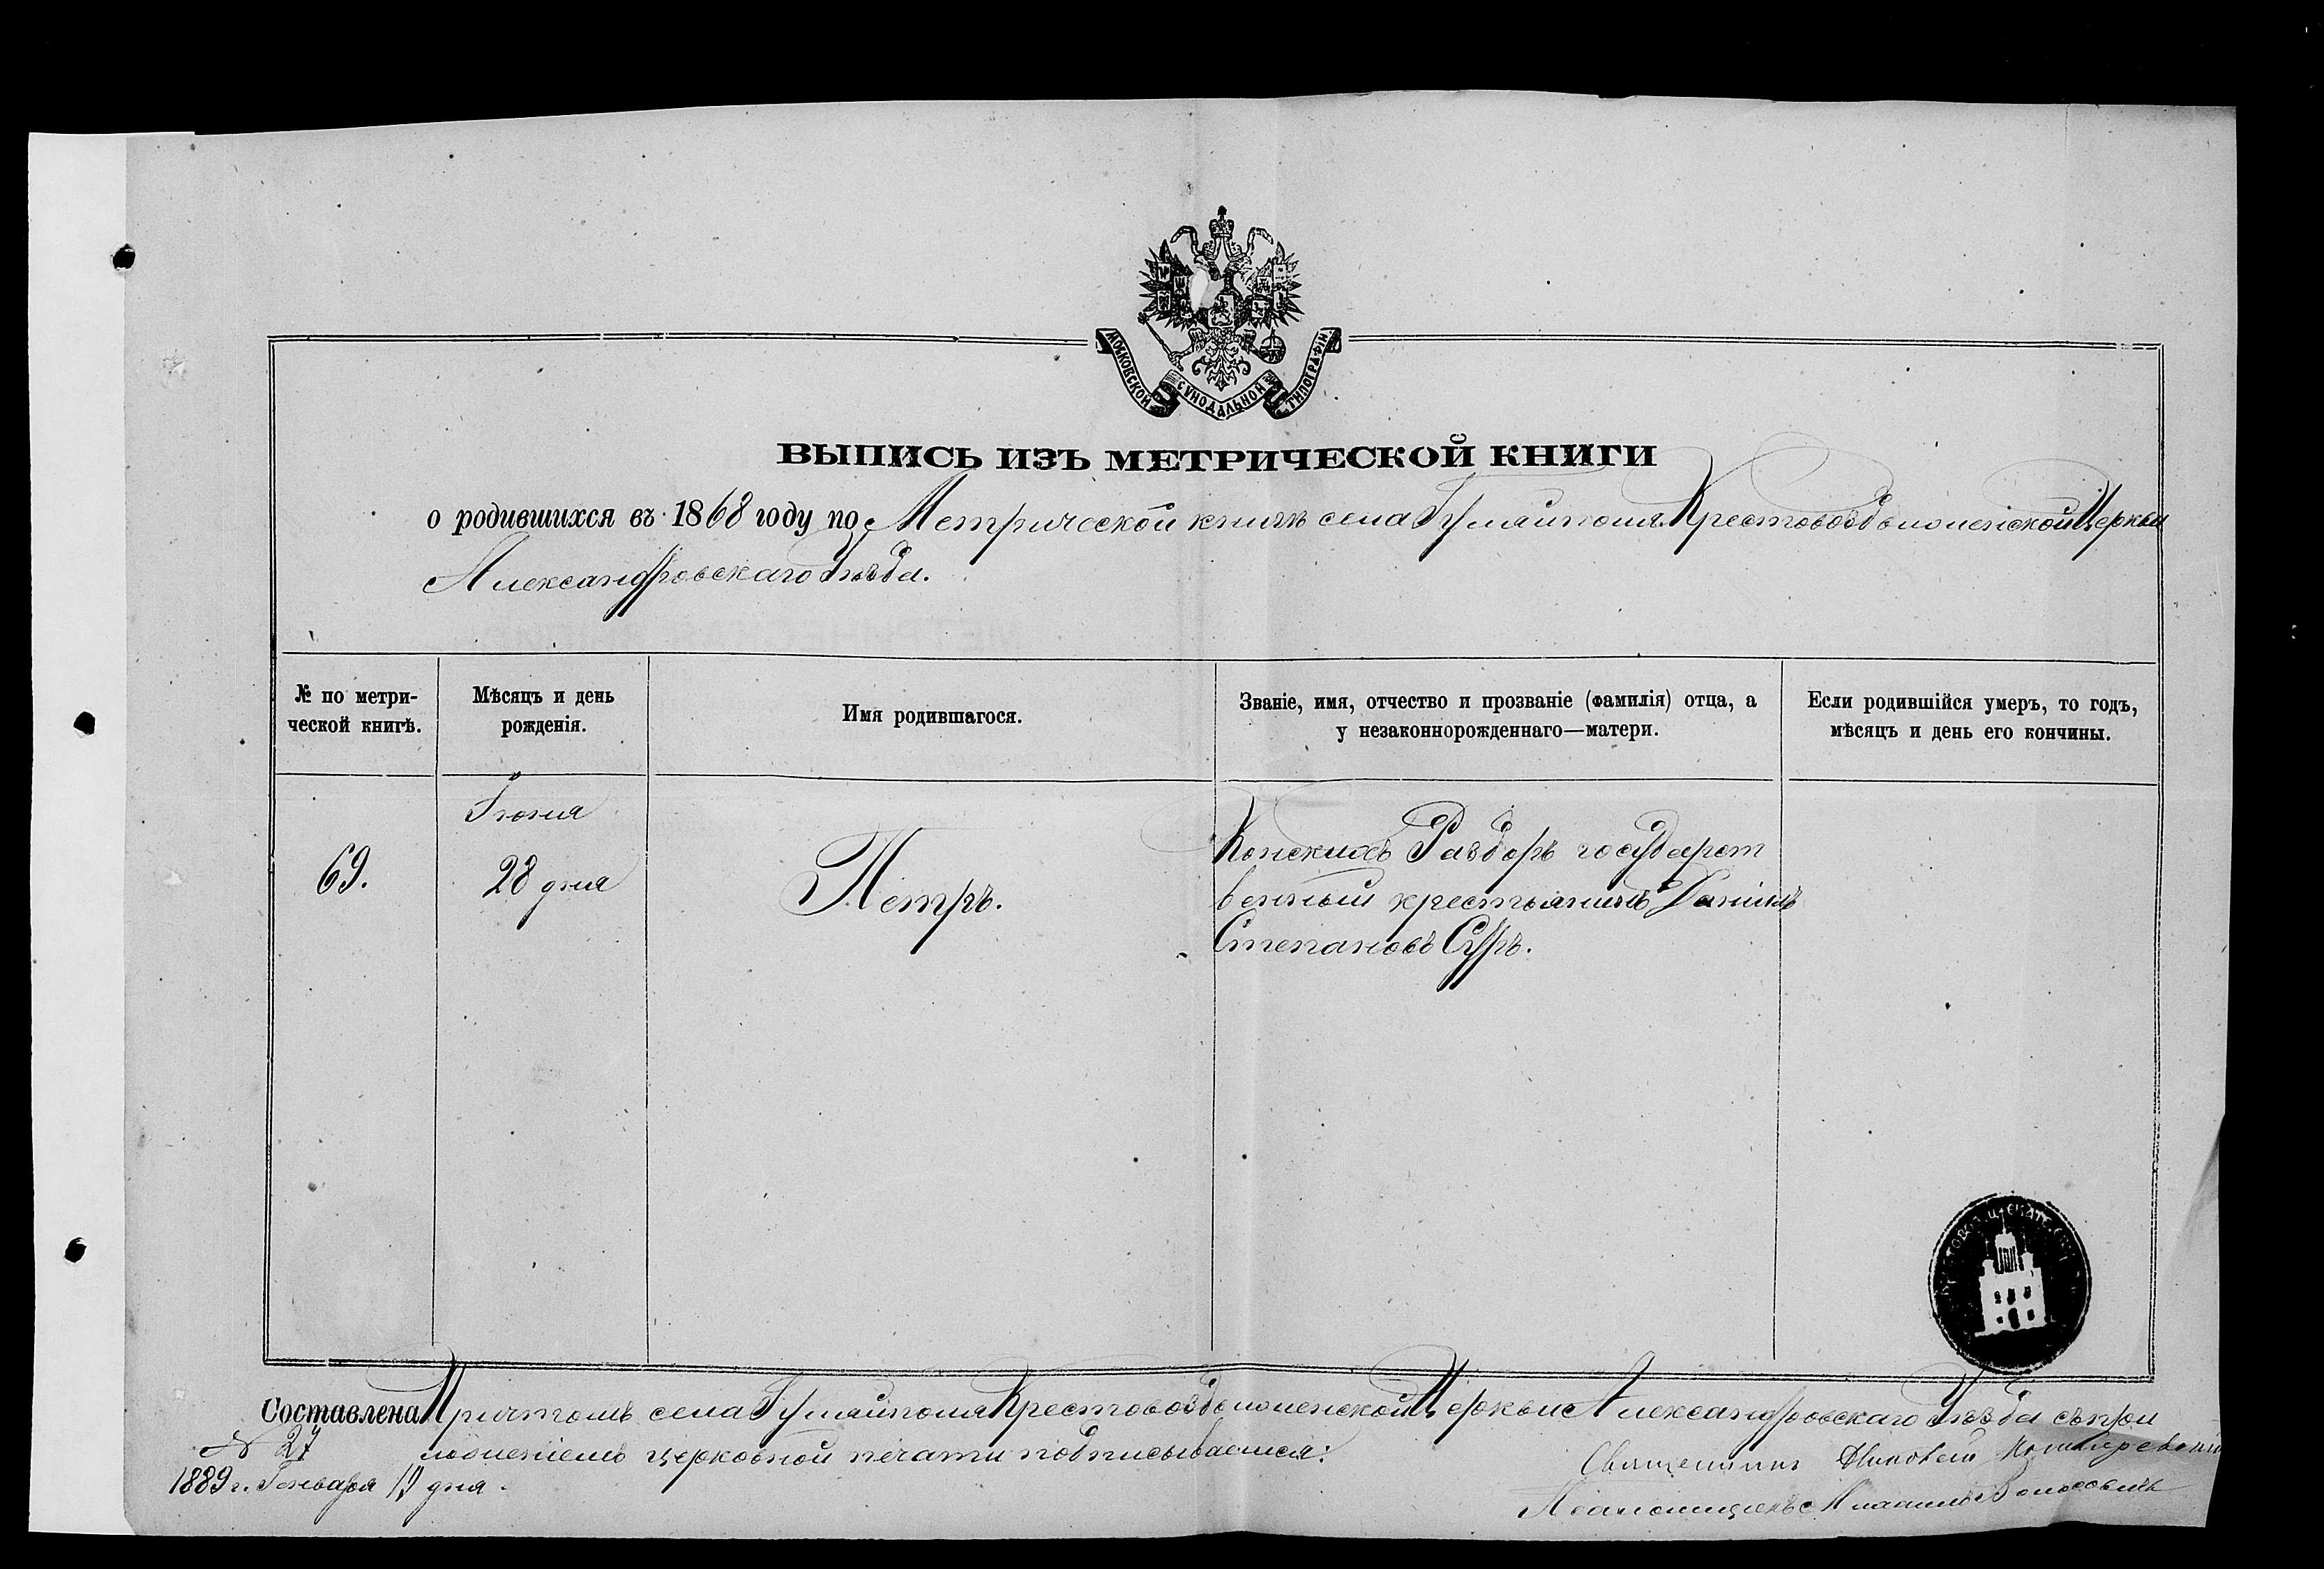 МОСКОВСКОЙ СѴНОДАЛЬНОЙ ТИПОГРАФІИ
ВЫПИСЬ ИЗЪ МЕТРИЧЕСКОЙ КНИГИ
о родившихся въ 1868 году по Метрической книгѣ села Гуляйполя Крестовоздвиженской Церкви
Александровскаго Уѣзда.
№ по метри-
ческой книгѣ.
Мѣсяцъ и день
рожденія.
Имя родившагося.
Званіе, имя, отчество и прозваніе (фамилія) отца, а
у незаконнорожденнаго—матери.
Если родившійся умеръ, то годъ,
мѣсяцъ и день его кончины.
69.
Іюня
28 дня
Петръ.
Конскихъ Раздоръ государст
венный крестьянинъ Даніилъ
Степановъ Суръ.
Составлена Причтомъ села Гуляйполя Крестовоздвиженской Церкви Александровскаго Уѣзда съ при
№ 27
ложеніемъ церковной печати подписываемся:
1889 г. Генваря 19 дня.
Священникъ
Псаломщикъ